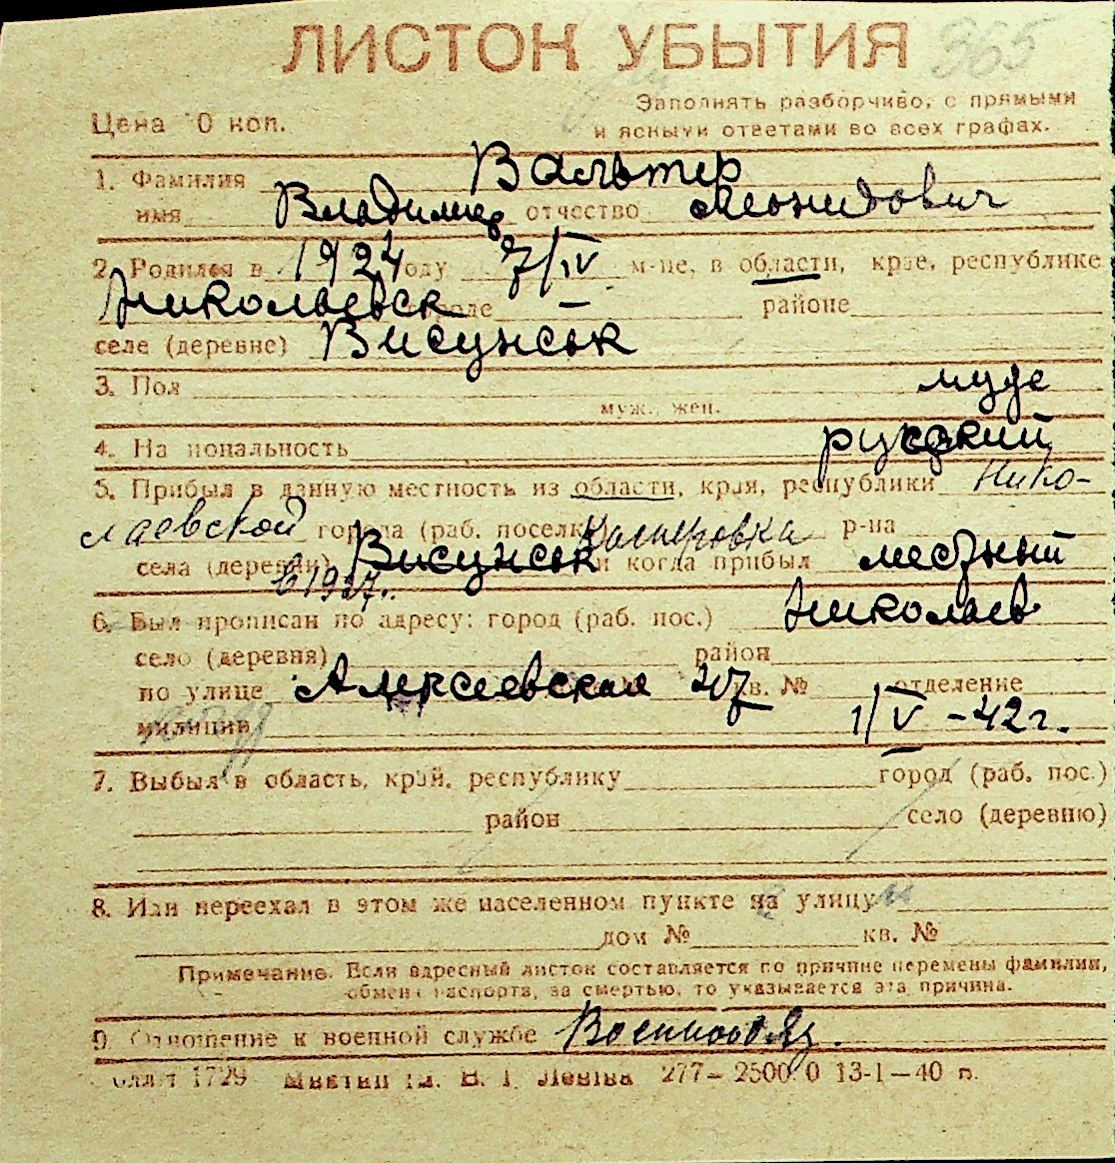 ЛИСТОК УБЫТИЯ 365
Заполнять разборчиво, с прямыми
Цена 10 коп. и ясными ответами во всех графах.
1. Фамилия Вальтер
имя Владимир отчество Леонидович
2. Родился в 1924 году 7/IV м-це, в области, крае, республике
Николаевск городе районе
селе (деревне) Висунськ
3. Пол муж
муж., жен.
4. Национальность русский
5. Прибыл в данную местность из области, края, республики Нико-
лаевской города (раб. поселка) р-на
села (деревни) Висунськ и когда прибыл местный
в 1927.
6. Был прописан по адресу: город (раб. пос.) Николаев
село (деревня) район
по улице Алексеевская кв. № отделение
милиции 1/V -42 г.
7. Выбыл в область, край, республику город (раб. пос.)
район село (деревню)
8. Или переехал в этом же населенном пункте на улицу
дом № кв. №
Примечание. Если адресный листок составляется по причине перемены фамилии,
обмена паспорта, за смертью, то указывается эта причина.
9. Отношение к военной службе Военнообяз.
1729 ім. В. І. Леніна 277—25000 13-I—40 п.